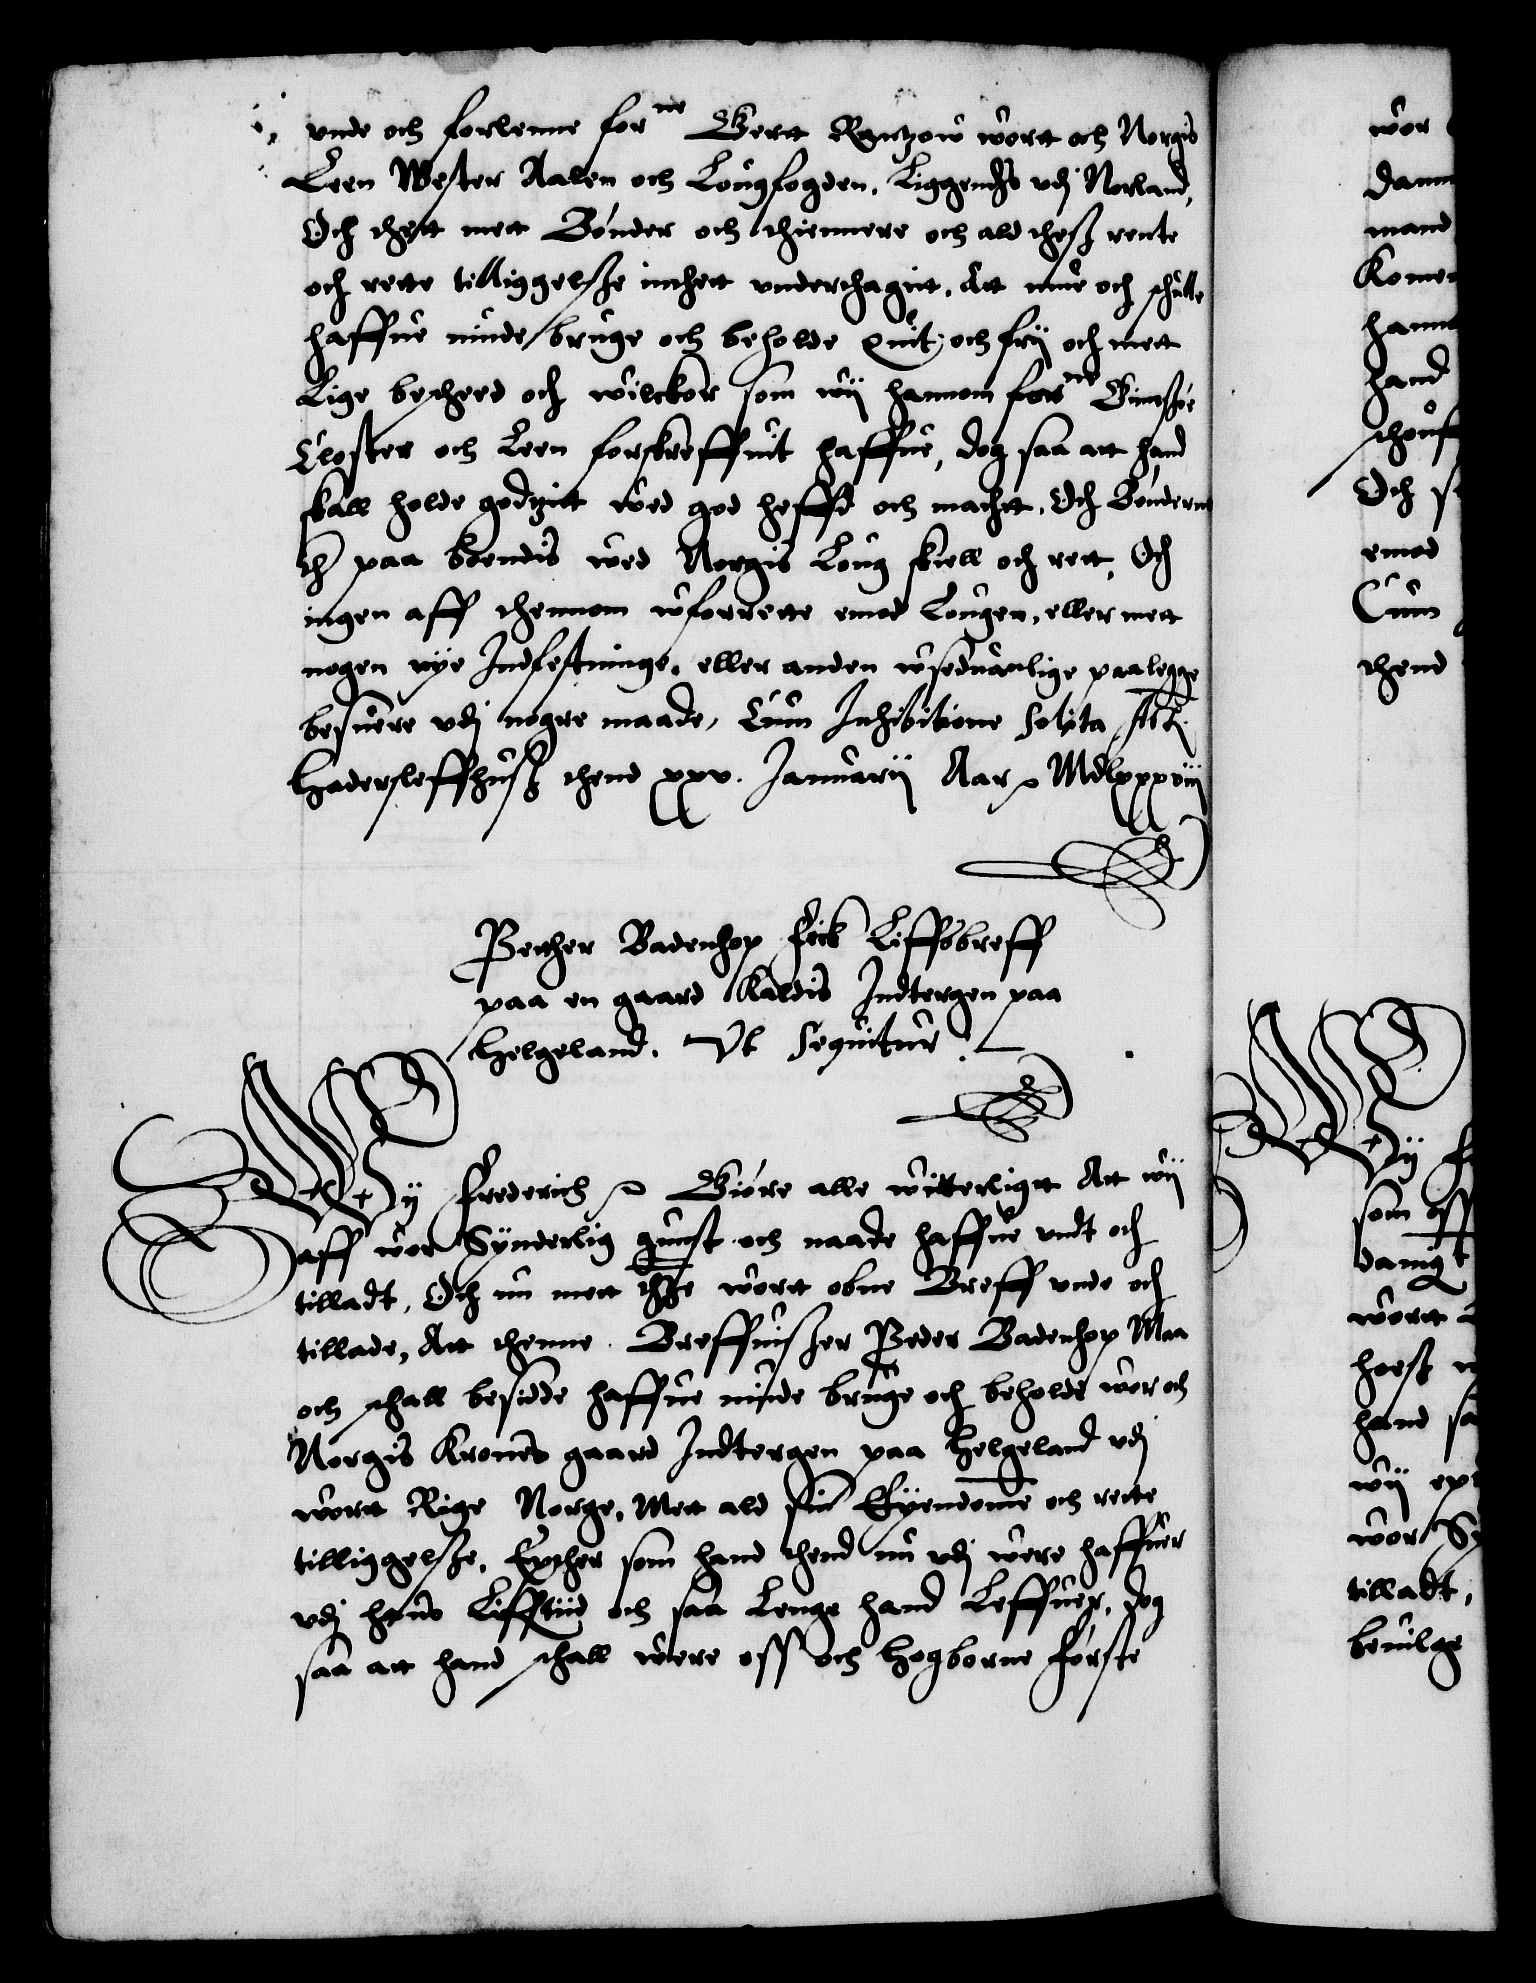 vnde och forlenne for^ne Gert Rantzow wort och Norgis
Leen Wester Aalen och Lougfogden. Liggendis vdj Norland,
Och thett mett Bønder och thiennere och ald thess rente
och rette tilliggelsze inthett vnderthagitt. Att mue och schulle
haffue niude bruge och beholde quit och frij och mett
Lige bescheed och wilckor som wij hannom for^ne Gimsøe
Closter och Leen forskreffuit haffue, dog saa att hand
skall holde godzitt wed god heffd och machtt, Och Bønderne
ther paa boendis wed Norgis Loug skell och rett, Och
ingen aff thennom wforrette emod Lougen, eller mett
nogen nye Indfestninge, eller anden wseduanlige paalegge
besuere vdj nogre maade, Cum Inhibitione Solita Actt.
Haderszleffhusz thend xxv. Januarij Aar &c MDlxxxviij

Pether Badenhop fick Liffsbreff
paa en gaard Kaldis Indtergen paa
Helgeland. Vt Sequitur.

Wij Frederich &c Giøre alle witterligtt Att wij
aff wor Synderlig gunst och naade haffue vndt och
tilladt, Och nu mett thette wort obne Breff vnde och
tillade, Att thenne Breffuiszer Peder Badenhop Maa
och schall besidde haffue niude bruge och beholde wor och
Norgis Krones gaard Indtergen paa Helgeland vdj
wort Rige Norge, Mett ald sin Eyendomme och rette
tilliggelsze, Epther som hand thend nu vdj were haffuer
vdj hans Liffztiid och saa Lenge hand Leffuer, dog
saa att hand schall were oss och Hogborne Første

wor
dann
mand
Komer
hann
hand
Och
emod
Cum
thend

Wij
som
wort
hand
wij
wor
tilladt,
beuilge